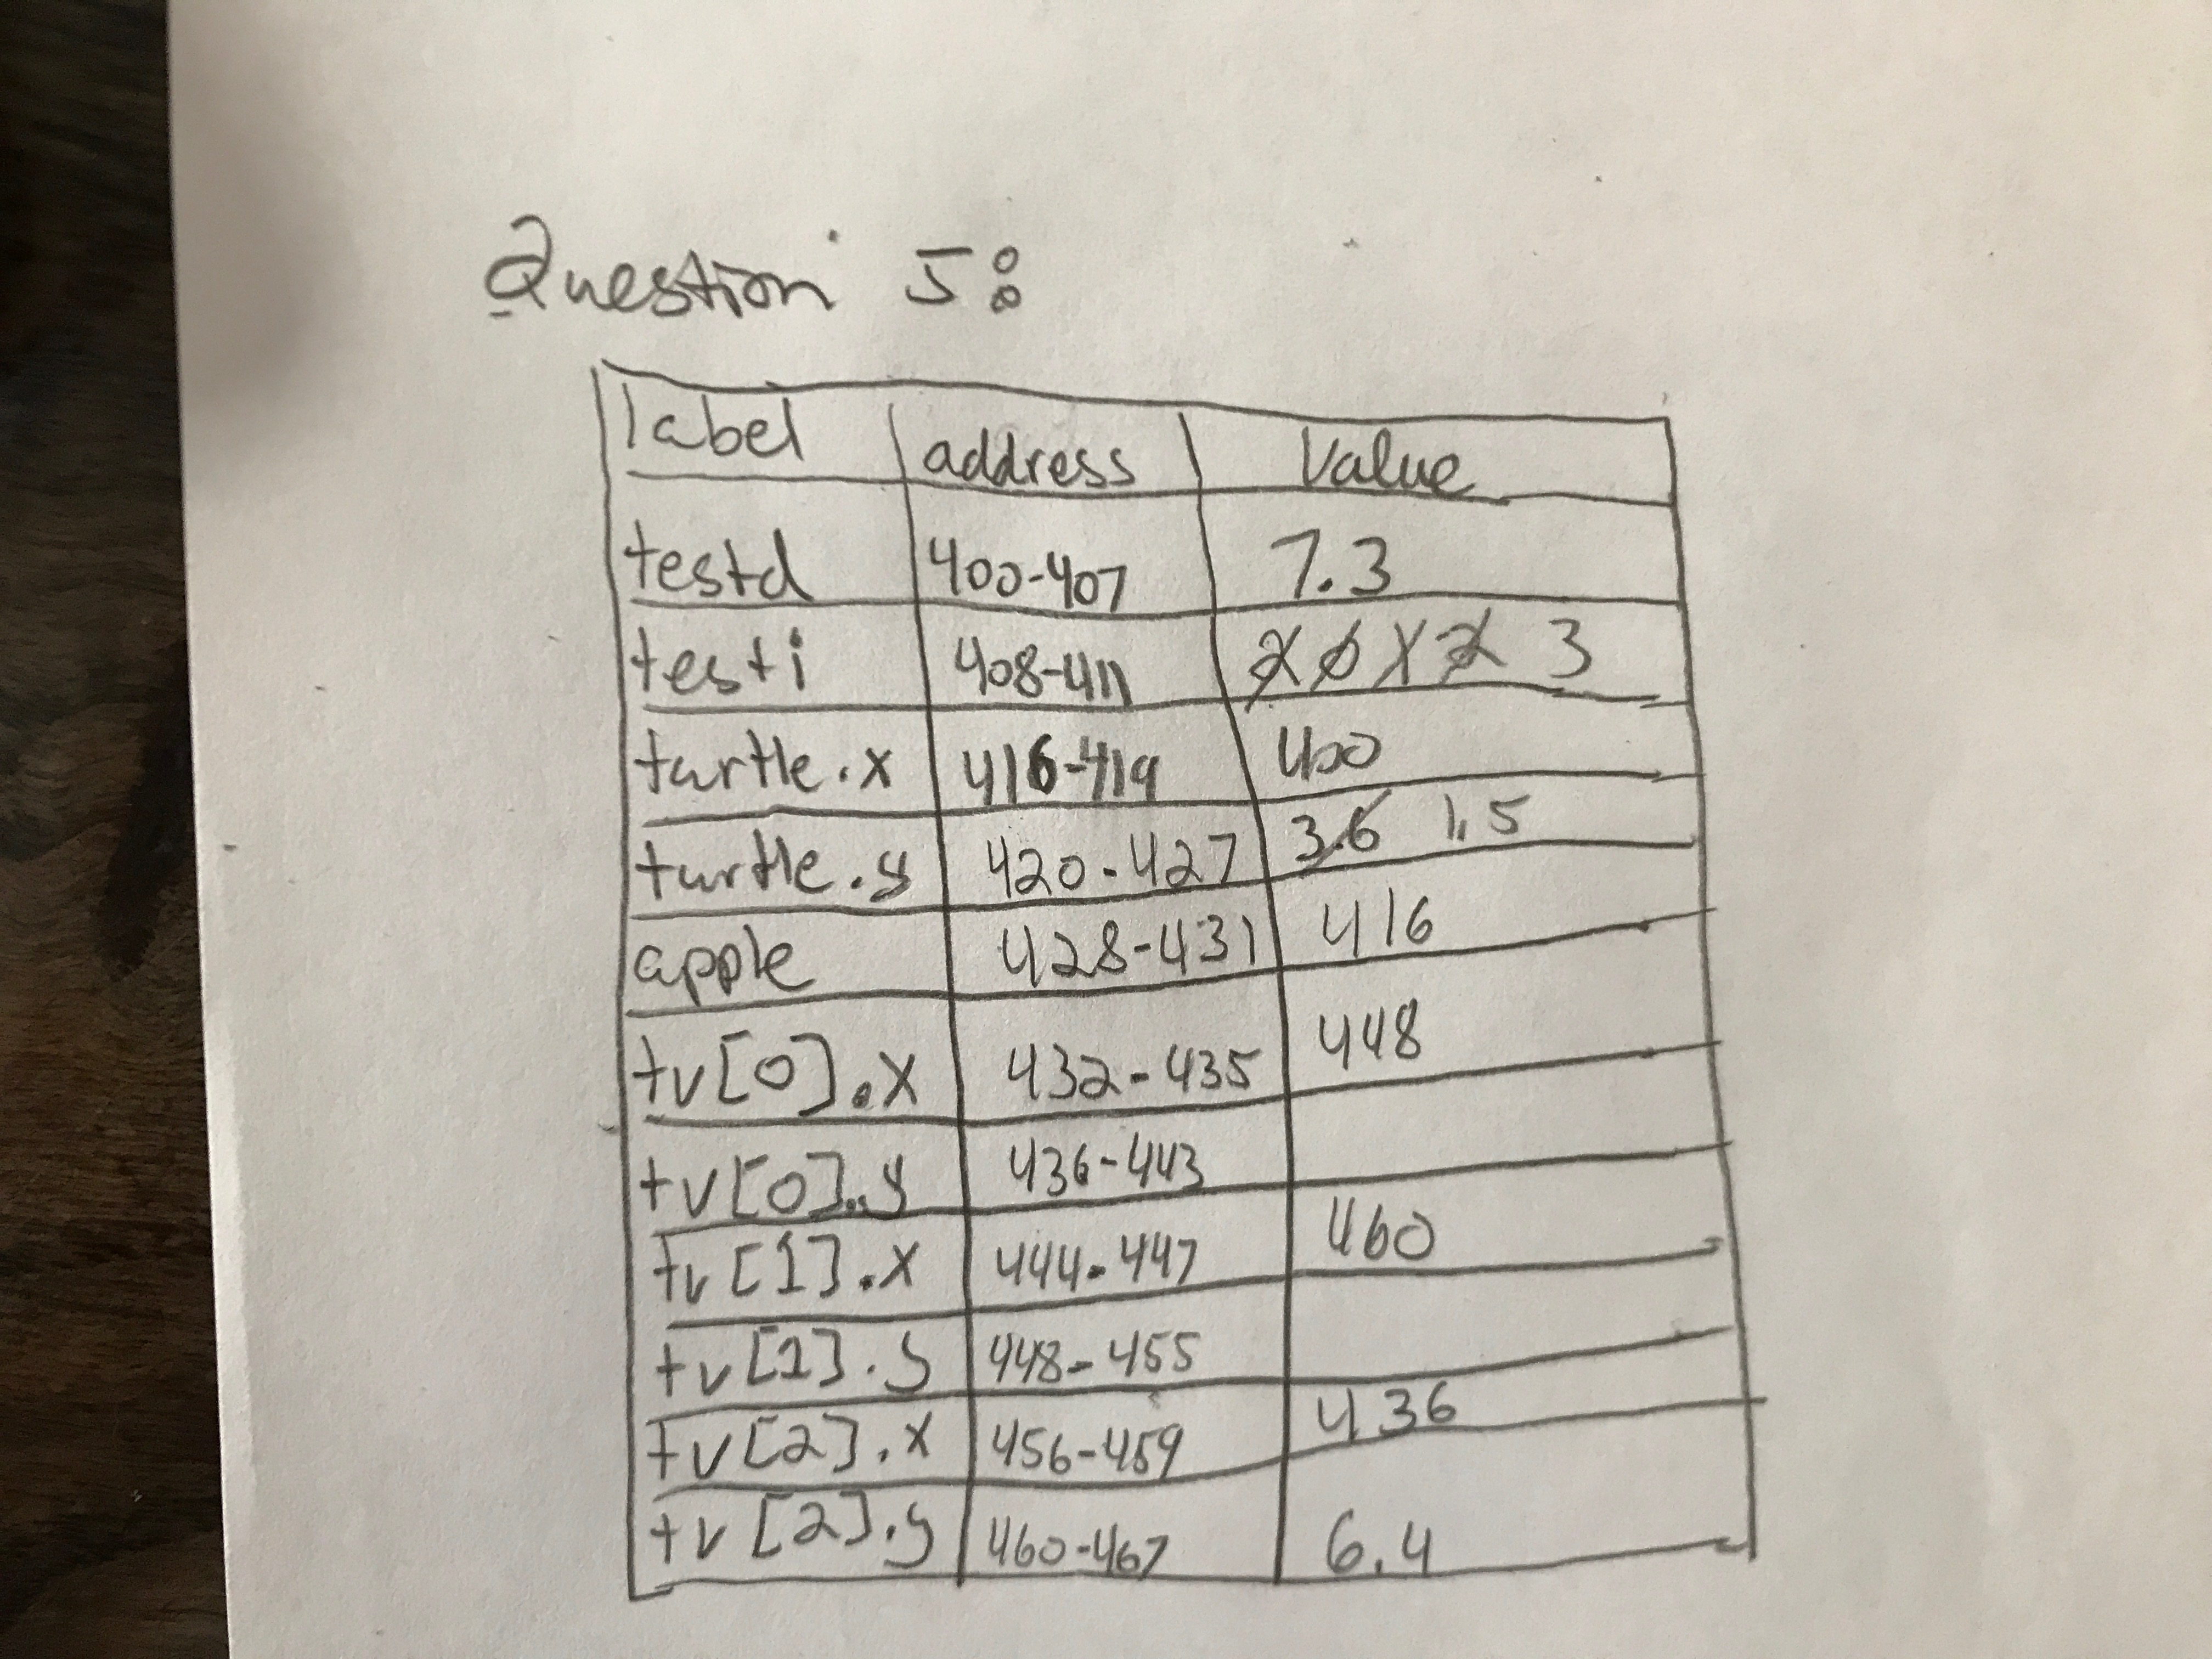 Question 5:
label address Value
testd 400-407 7.3
testi 408-411 2 0 1 2 3
turtle.x 416-419 400
turtle.y 420-427 3.6 1.5
apple 428-431 416
tv[0].x 432-435 448
tv[0].y 436-443
tv[1].x 444-447 460
tv[1].y 448-455
tv[2].x 456-459 436
tv[2].y 460-467 6.4